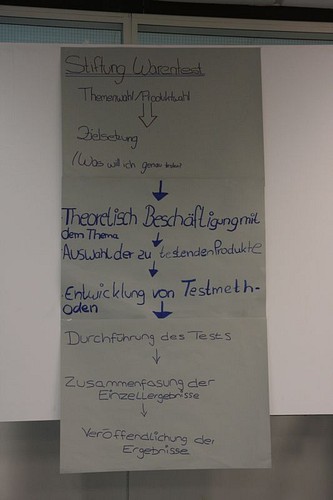 Stiftung Warentest
Themenwahl/Produktwahl
Zielsetzung
/Was will ich genau
Theoretisch Beschäftigung mit
dem Thema
Auswahl der zu testenden Produkte
Entwicklung von Testmeth-
oden
Durchführung des Tests
Zusammenfasung der
Einzellergebnisse
Veröffendlichung der
Ergebnisse